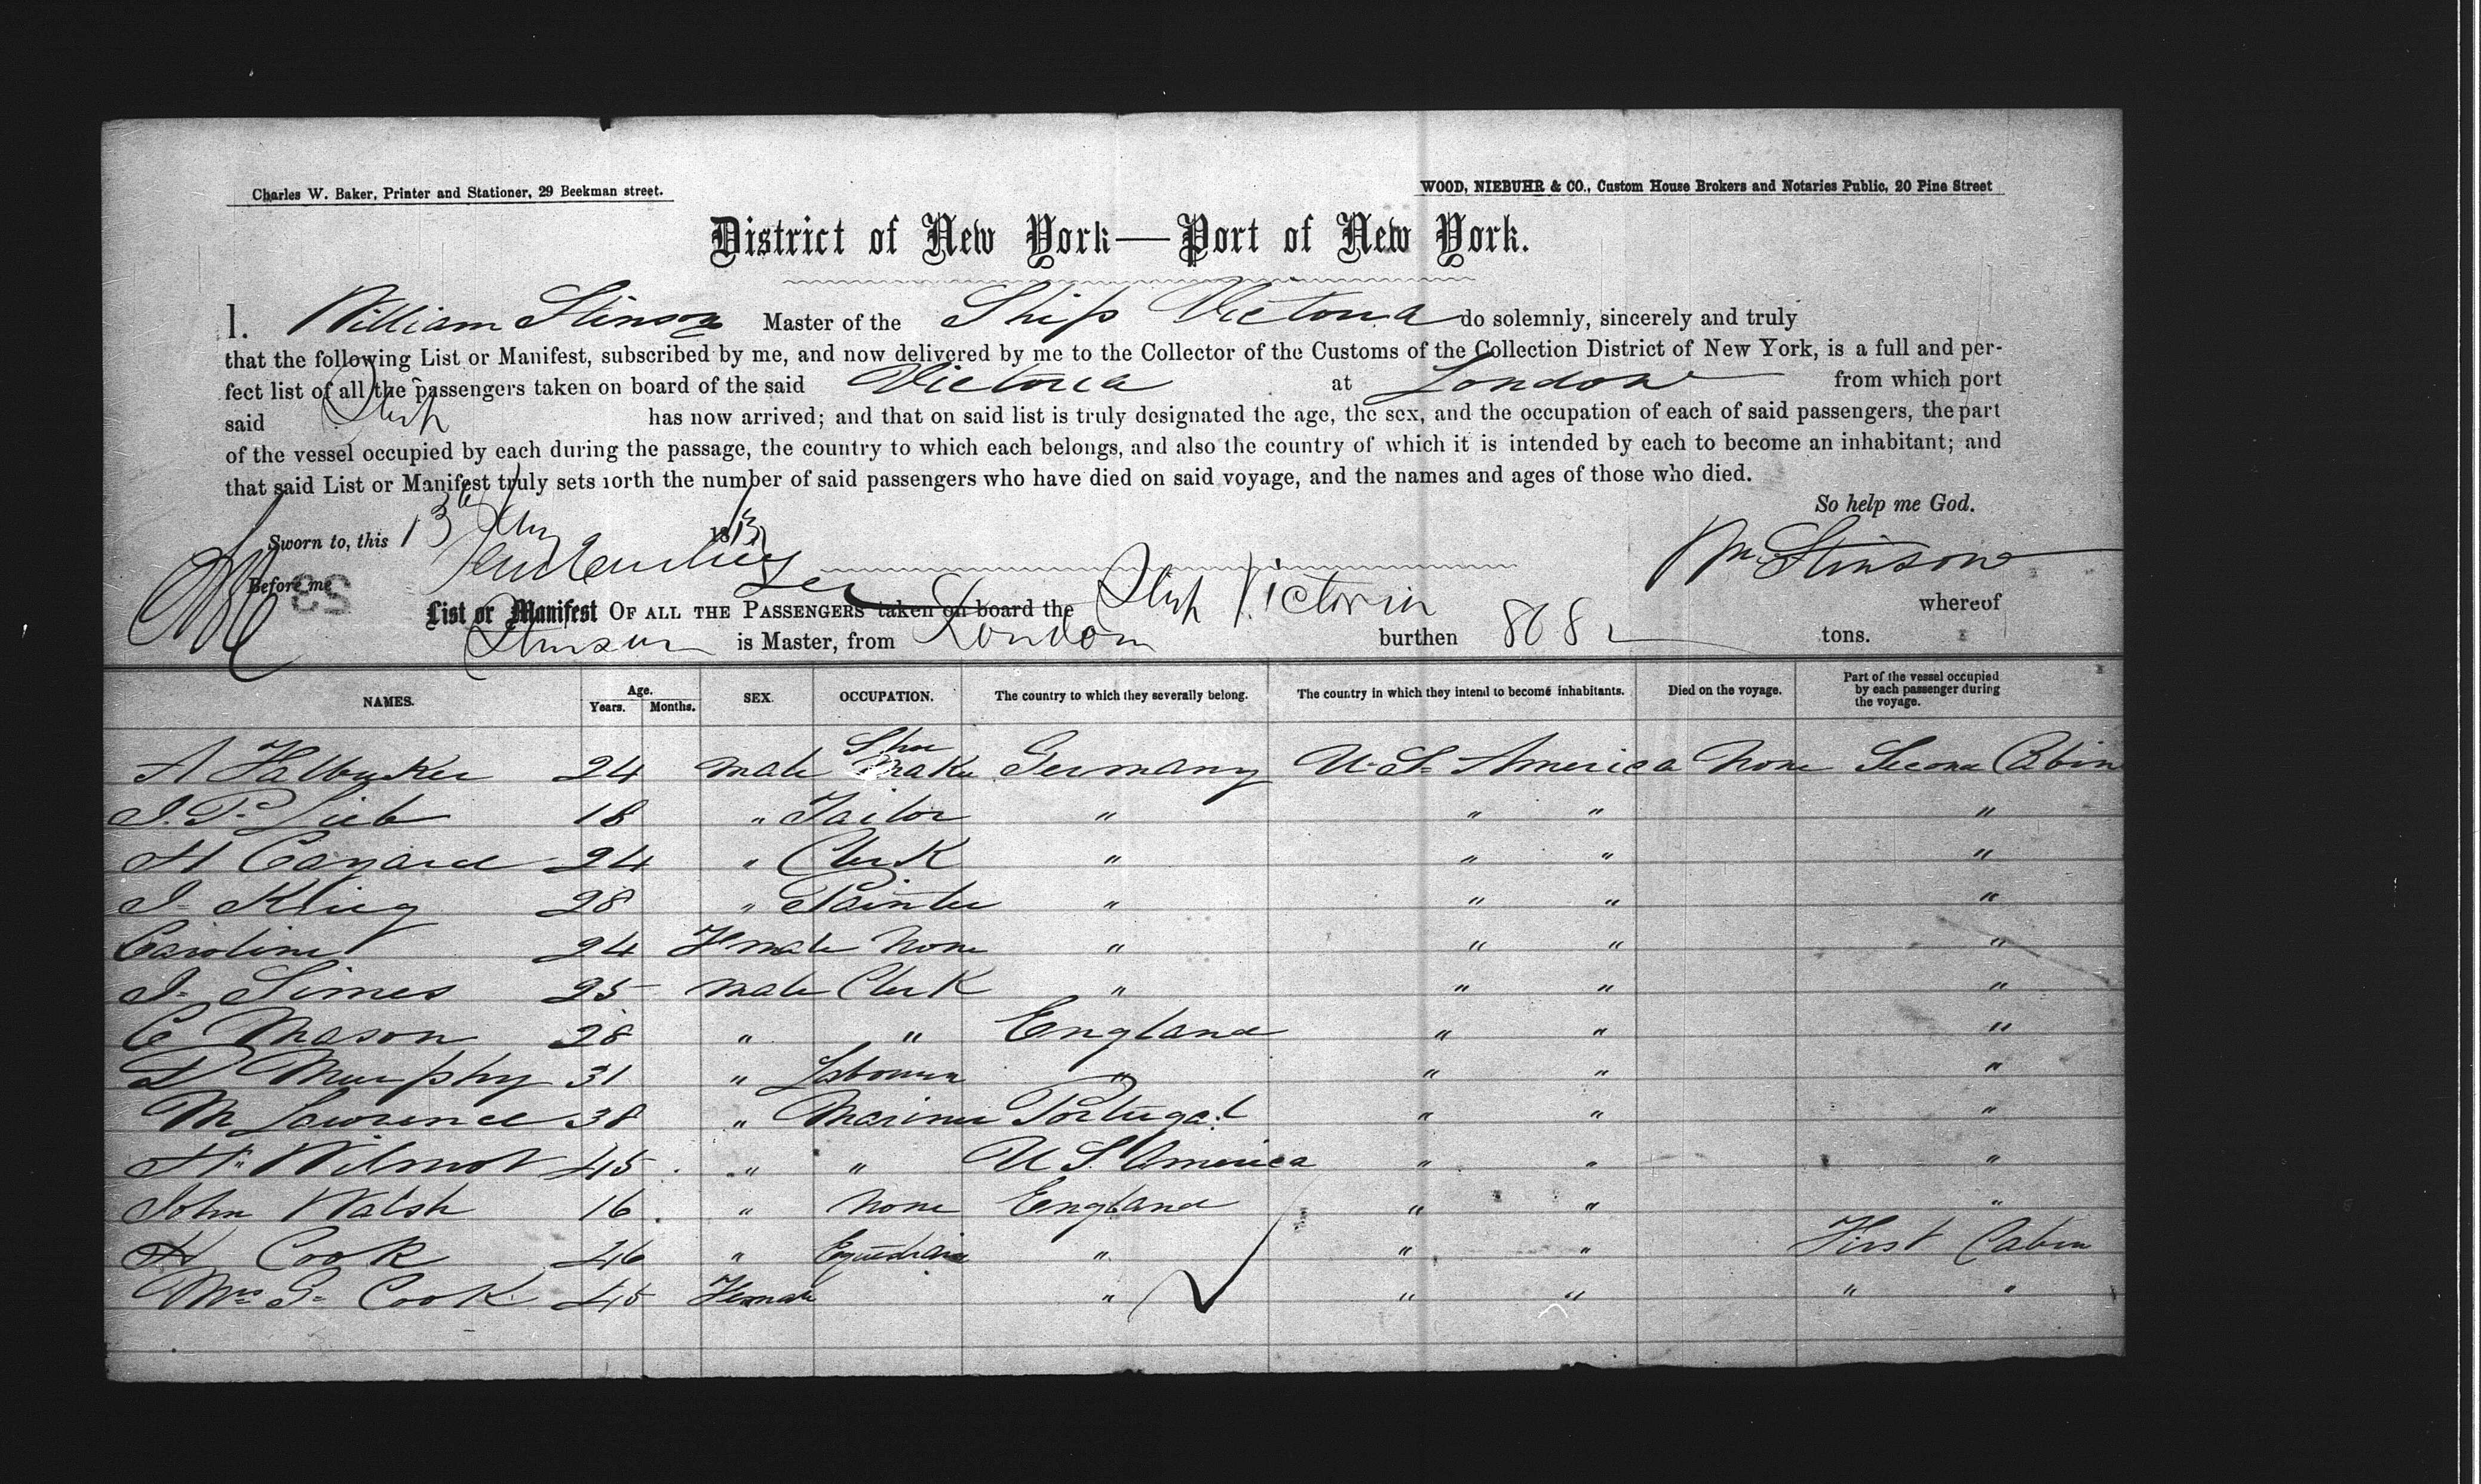 Charles W. Baker, Printer and Stationer, 29 Beekman street.
WOOD, NIEBUHR & CO., Custom House Brokers and Notaries Public, 20 Pine Street
District of New York—Port of New York.
I. William Stinson Master of the Ship Victoria do solemnly, sincerely and truly
that the following List or Manifest, subscribed by me, and now delivered by me to the Collector of the Customs of the Collection District of New York, is a full and per-
fect list of all the passengers taken on board of the said Victoria at London from which port
said Ship has now arrived; and that on said list is truly designated the age, the sex, and the occupation of each of said passengers, the part
of the vessel occupied by each during the passage, the country to which each belongs, and also the country of which it is intended by each to become an inhabitant; and
that said List or Manifest truly sets forth the number of said passengers who have died on said voyage, and the names and ages of those who died.
So help me God.
Sworn to, this 13th 18
Wm Stinson
Before me
List or Manifest OF ALL THE PASSENGERS taken on board the Ship Victoria whereof
Stinson is Master, from London burthen 868 tons.
NAMES. Age. Years. Months. SEX. OCCUPATION. The country to which they severally belong. The country in which they intend to become inhabitants. Died on the voyage. Part of the vessel occupied by each passenger during the voyage.
A 24 male Shoe Maker Germany U. S. America None Second Cabin
J. P. Lieb 18 " Tailor " " " "
H 24 " Clerk " " " "
J. Krieg 28 " Painter " " " "
Caroline 24 Female None " " " "
J. Simes 25 male Clerk " " " "
C Mason 28 " " England " " "
D Murphy 31 " Labourer " " " "
M Lawrence 38 " Mariner Portugal " " "
H. Wilmot 45 " " U S. America " " "
John Walsh 16 " None England " " "
H Cook 46 " Equestrian " " " First Cabin
Mrs G. Cook 45 Female " " " " "